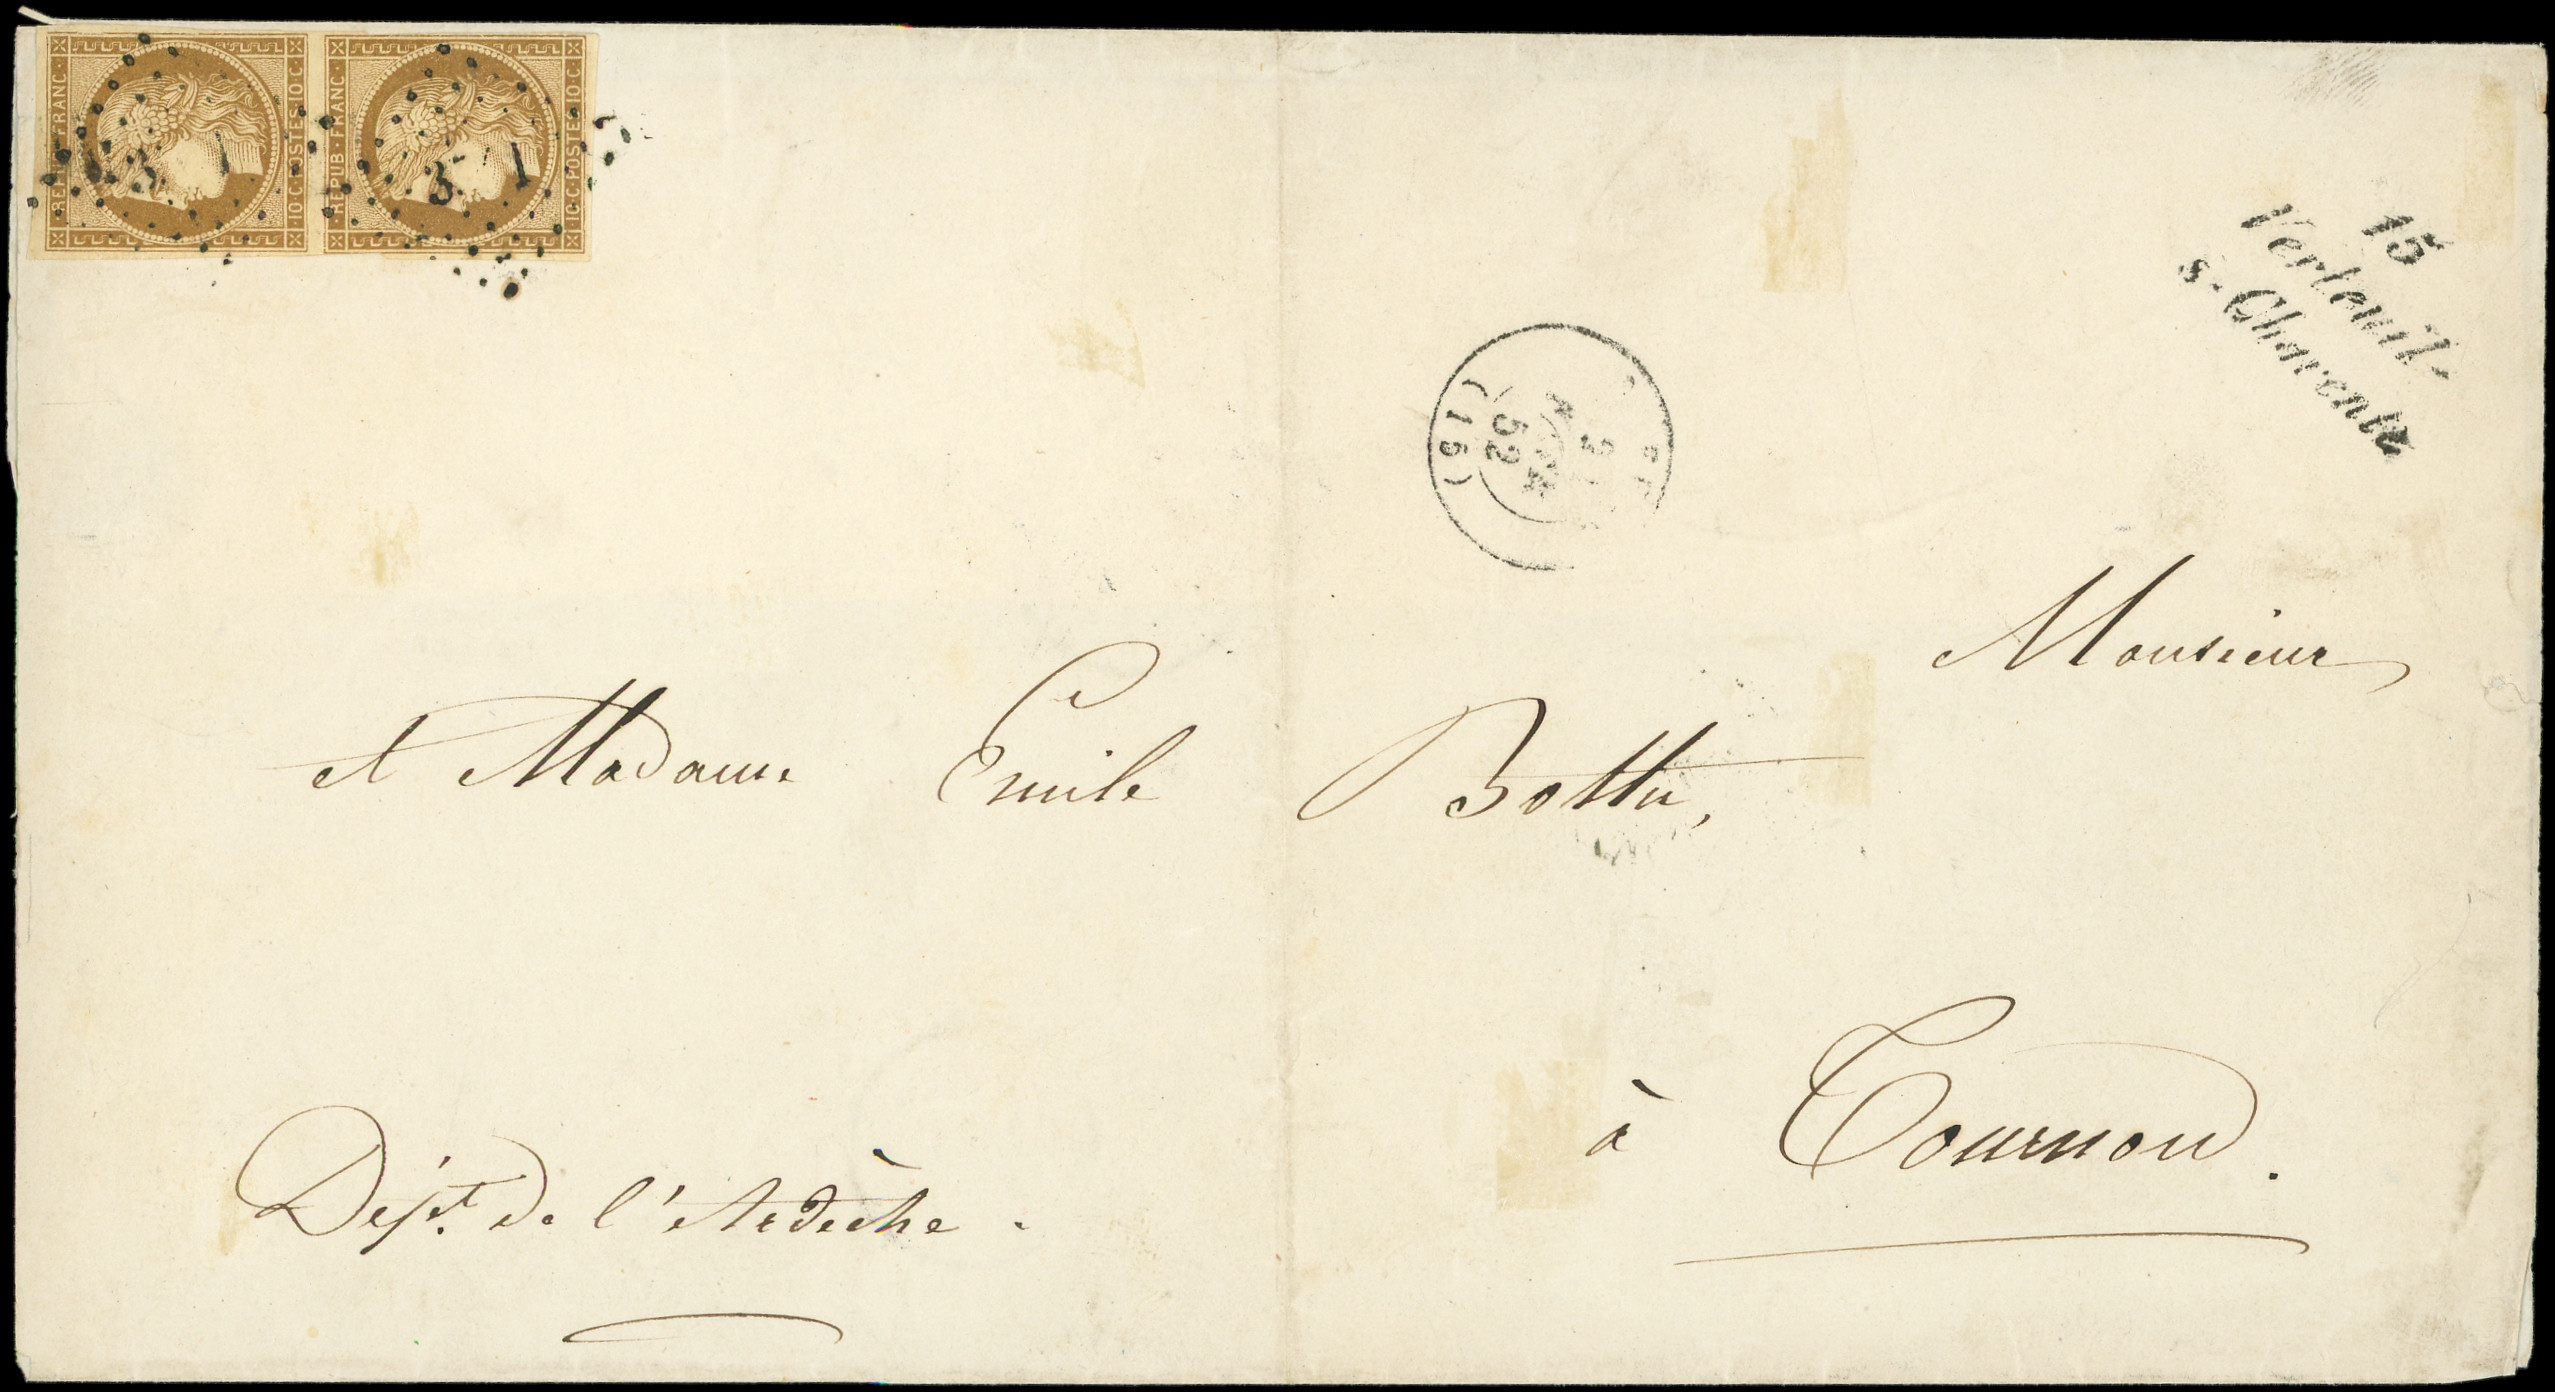 REPUB·FRANC·
10·C·POSTES·10·C·
REPUB·FRANC·
10·C·POSTES·10·C·
15
Verteuil-
s.-Charente
52
(15)
Monsieur
et Madame Emile Bottu,
à Tournon.
Dépt. de l'Ardèche.